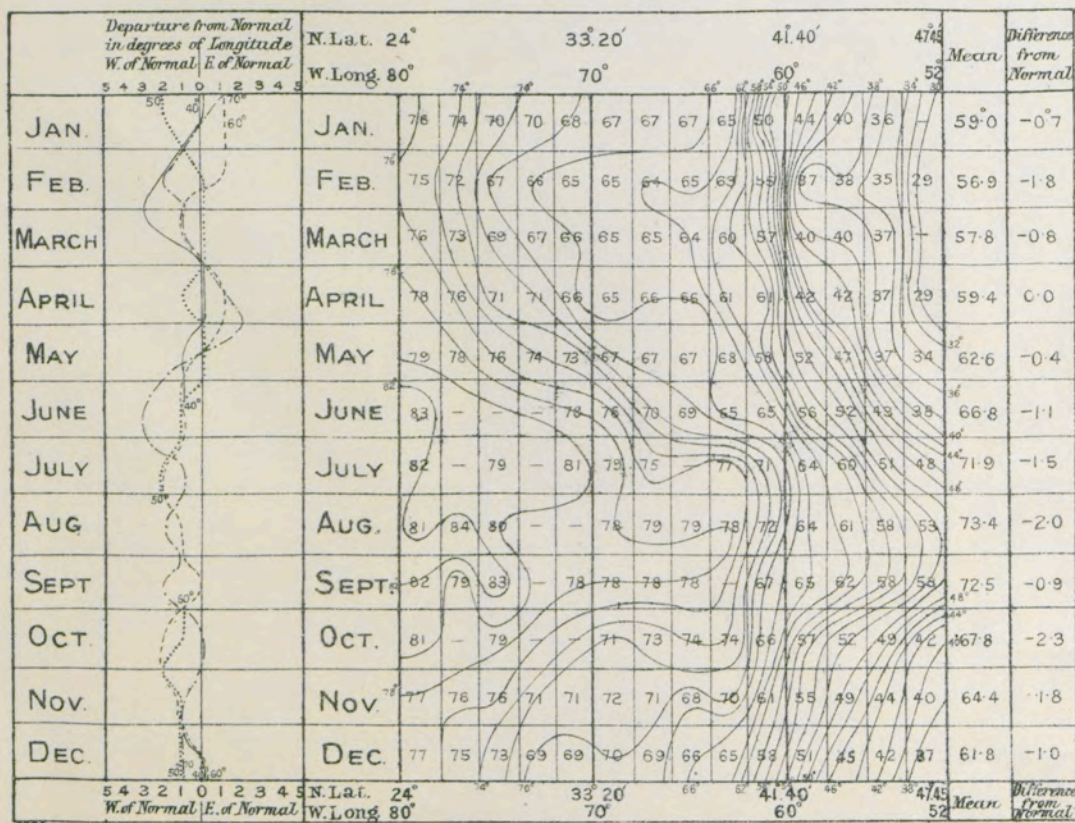 Departure from Normal
in degrees of Longitude
W. of Normal E. of Normal
5 4 3 2 1 0 1 2 3 4 5
N. Lat. 24° 33.20′ 41.40′ 47.45′
W. Long. 80° 70° 60° 52°
Mean
Difference
from
Normal
74° 74° 66° 62° 58° 54° 50° 46° 42° 38° 34° 30°
50° 40° 70° 60°
JAN. JAN. 76 74 70 70 68 67 67 67 65 50 44 40 36 – 59°.0 –0°.7
76°
FEB. FEB. 75 72 67 66 65 65 64 65 63 56 37 38 35 29 56.9 –1.8
MARCH MARCH 76 73 69 67 66 65 65 64 60 57 40 40 37 – 57.8 –0.8
78°
APRIL APRIL 78 76 71 71 66 65 66 66 61 61 42 42 37 29 59.4 0.0
32°
MAY MAY 79 78 76 74 73 67 67 67 68 58 52 47 37 34 62.6 –0.4
82° 36°
40°
JUNE JUNE 83 – – – 78 76 70 69 65 65 56 52 43 38 66.8 –1.1
40°
44°
JULY JULY 82 – 79 – 81 79 75 – 77 71 64 60 51 48 71.9 –1.5
50° 46°
AUG AUG. 81 84 80 – – 78 79 79 78 72 64 61 58 53 73.4 –2.0
SEPT SEPT. 82 79 83 – 78 78 78 78 – 67 65 62 58 55 72.5 –0.9
60° 48°
44°
OCT. OCT. 81 – 79 – – 71 73 74 74 66 57 52 49 42 67.8 –2.3
78°
NOV. NOV. 77 76 76 71 71 72 71 68 70 61 55 49 44 40 64.4 –1.8
DEC. DEC. 77 75 73 69 69 70 69 66 65 58 51 45 42 37 61.8 –1.0
50° 70 40° 60°
5 4 3 2 1 0 1 2 3 4 5
W. of Normal E. of Normal
74° 70° 66° 62° 58° 54° 50° 46° 42° 38°
N. Lat. 24° 33° 20′ 41.40′ 47.45′
W. Long. 80° 70° 60° 52°
Mean
Difference
from
Normal